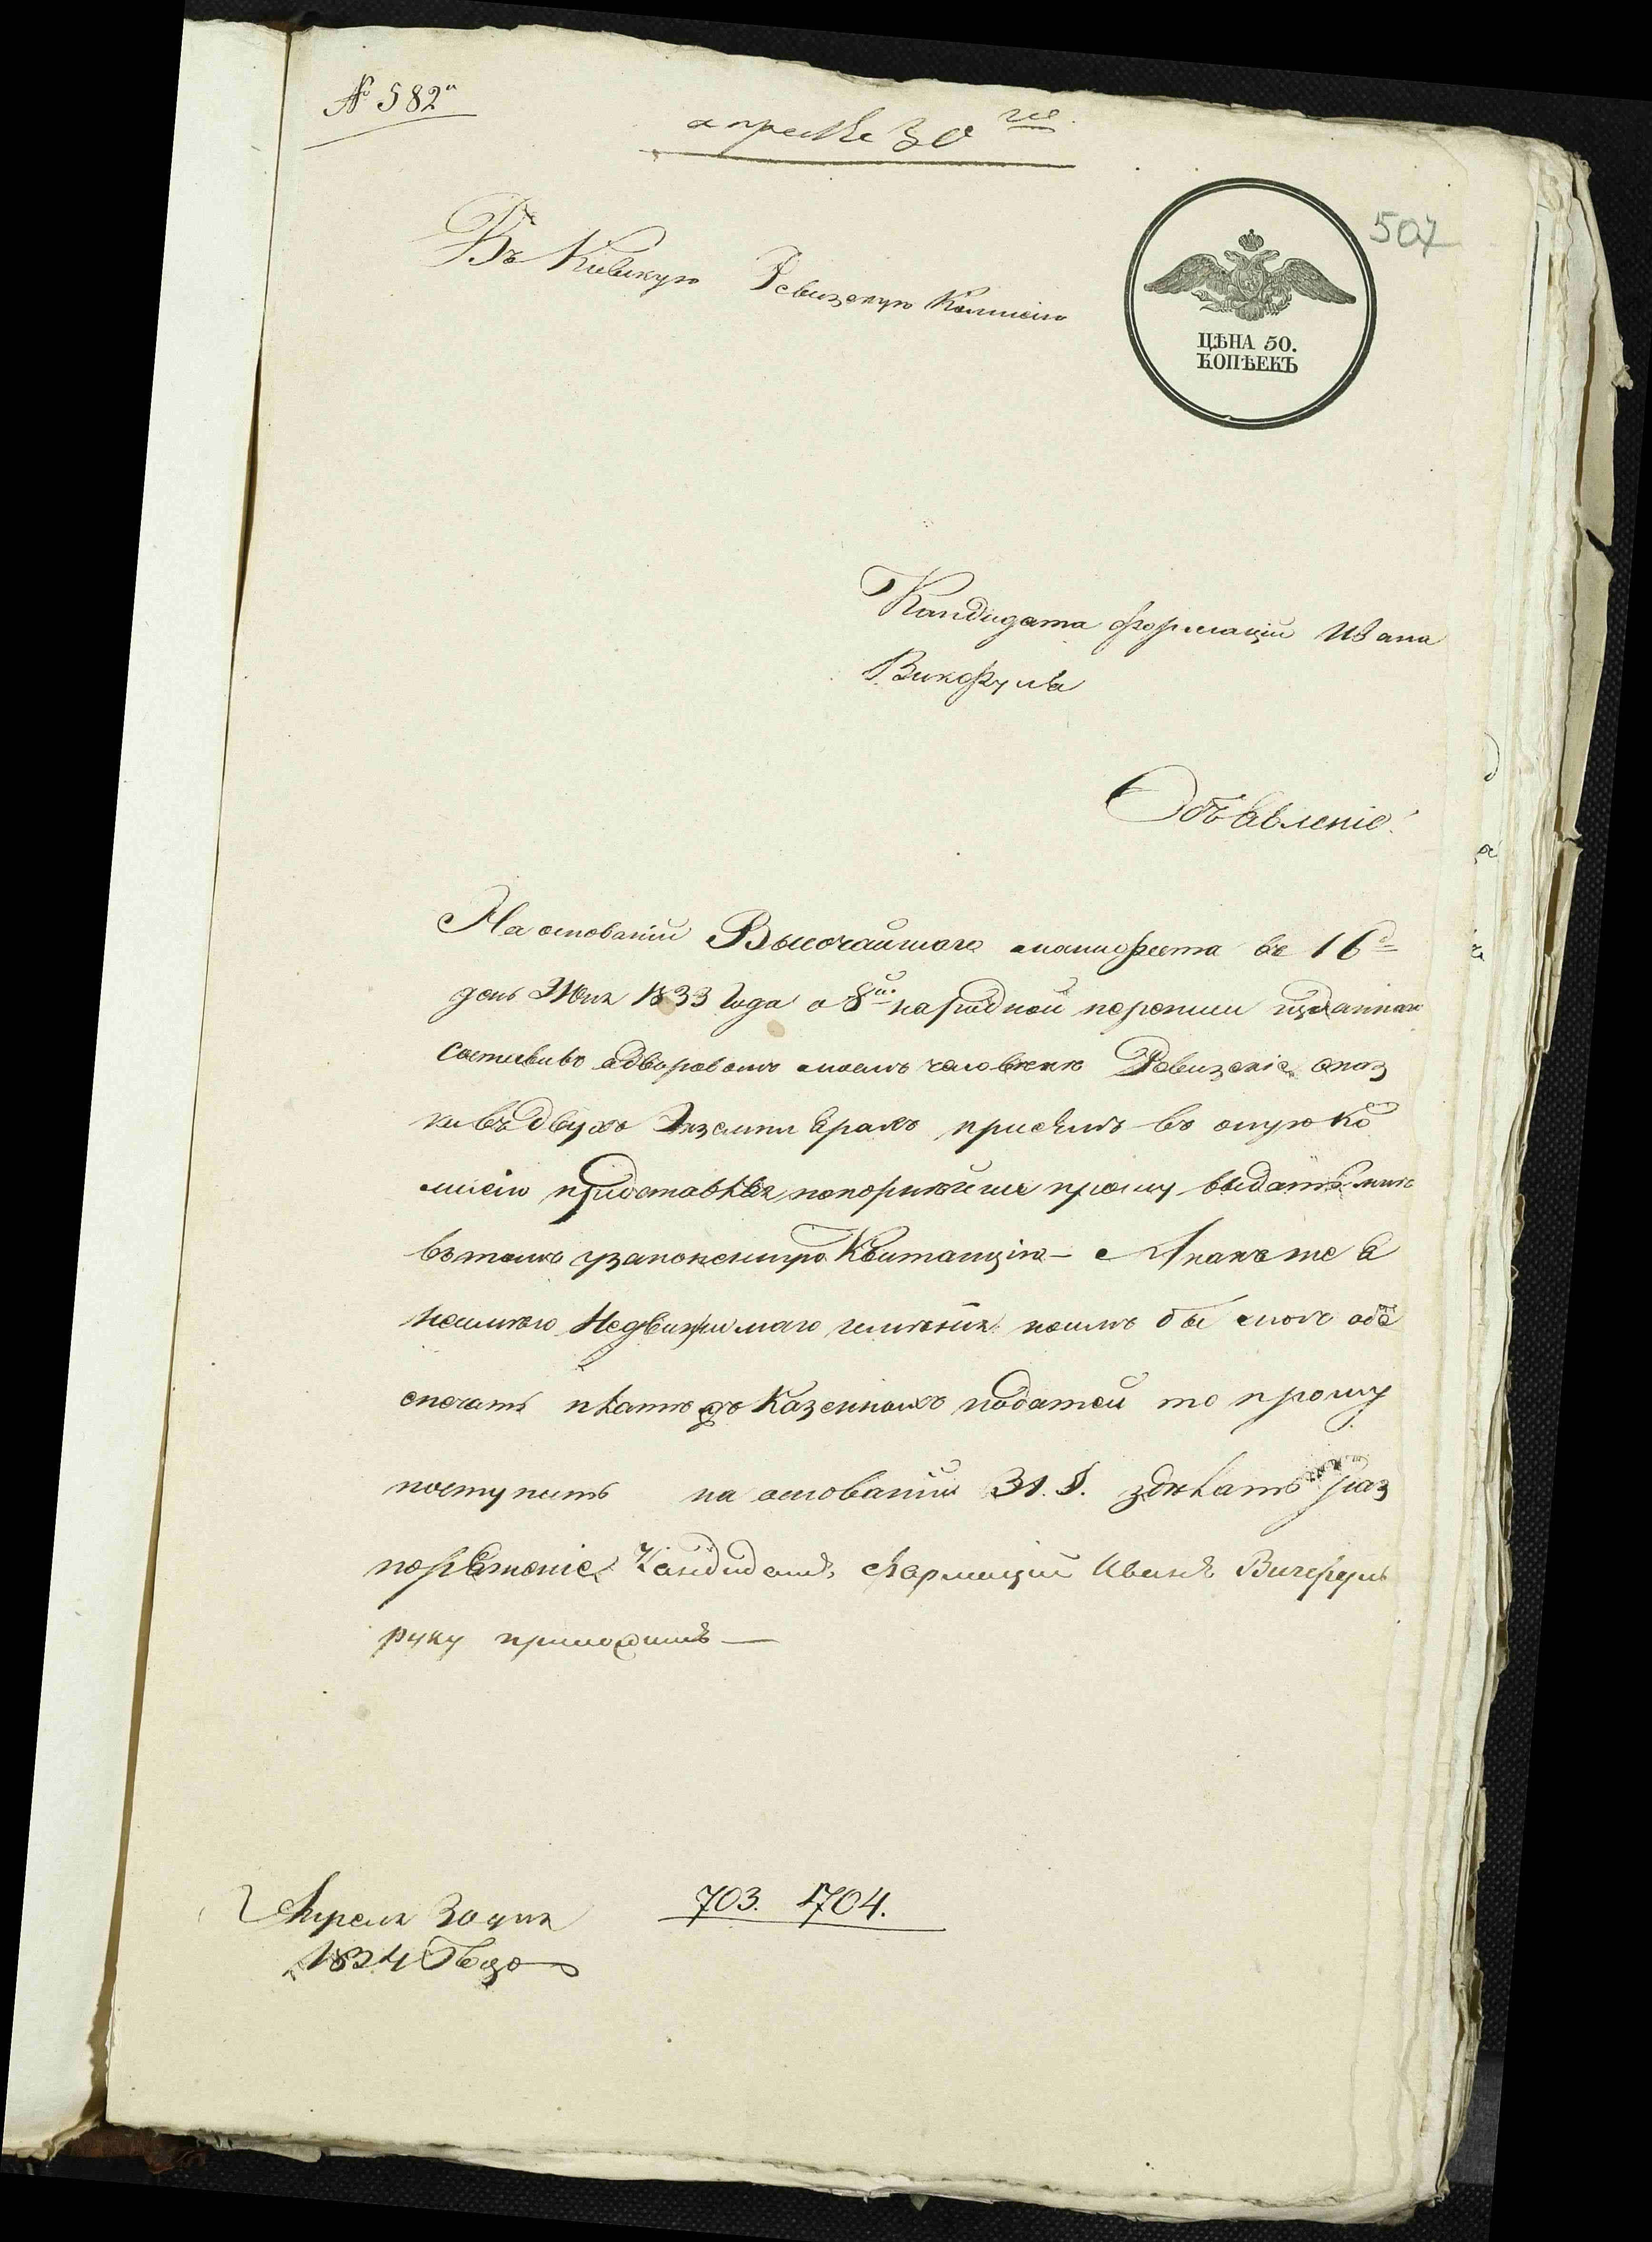 № 582й
апреля 30 го
507
Въ Киевскую Ревизскую Комисию
ЦѢНА 50.
КОПѢЕКЪ
Кандидата формации Ивана
Объявленiе
На основании Высочайшаго манифеста въ 16 д
день Июня 1833 Года о 8й народной переписи изданнаго
составивъ о дворовомъ моемъ человеке Ревизские сказ
ки въ двухъ экземплярахъ при семъ въ оную Ко
мисию представляя покорнейше прошу выдать мне
въ томъ узаконенную Квитанцию — А какъ же я
не имею Недвижимаго имения коимъ бы могъ обе
спечать платежъ Казенныхъ податей то прошу
поступить на основании 31. §. зделать раз
поряжение Кандидатъ Фармации Иванъ
руку приложилъ —
Апреля 30 дня
1834 Года
703. 1704.